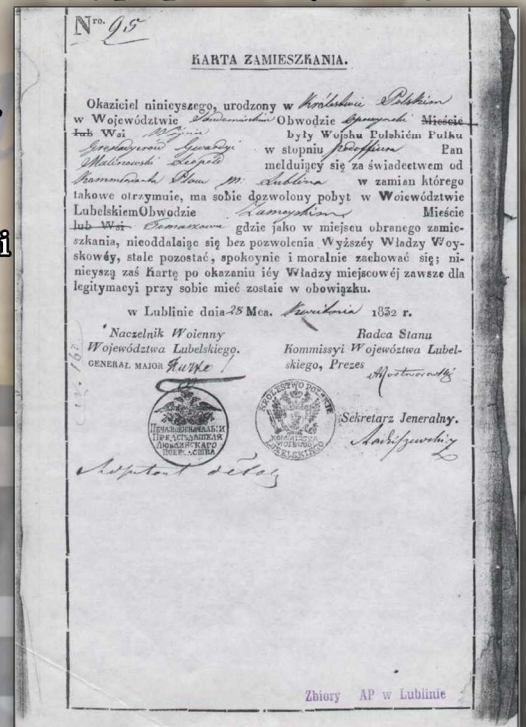 Nro. 95
KARTA ZAMIESZKANIA.
Okaziciel ninieyszego, urodzony w Królestwie Polskiem
w Województwie Sandomirskim Obwodzie Opoczyński Mieście
lub Wsi były Woysku Polskiém Pułku
Grenadyerów Gwardyi w stopniu podofficera Pan
Malinowski Leopold melduiący się za świadectwem od
Kommendanta Placu m. Lublina w zamian którego
takowe otrzymuie, ma sobie dozwolony pobyt w Woiewództwie
Lubelskiem Obwodzie Zamoyskim Mieście
lub Wsi Tomaszowa gdzie jako w miejscu obranego zamie-
szkania, nieoddalaiąc się bez pozwolenia Wyższéy Władzy Woy-
skowéy, stale pozostać, spokoynie i moralnie zachować się; ni-
nieyszą zaś Kartę po okazaniu iéy Władzy miejscowéj zawsze dla
legitymacyi przy sobie mieć zostaie w obowiązku.
w Lublinie dnia 28 Mca. Kwietnia 1832 r.
Naczelnik Woienny Radca Stanu
Województwa Lubelskiego. Kommissyi Województwa Lubel-
GENERAŁ MAJOR skiego, Prezes
KRÓLESTWO POLSKIE
Sekretarz Jeneralny.
Zbiory AP w Lublinie
i